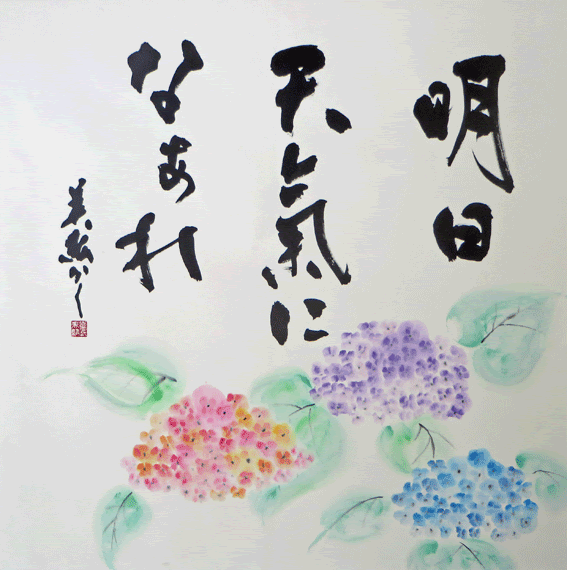 明日
天氣に
なあれ
美紘かく